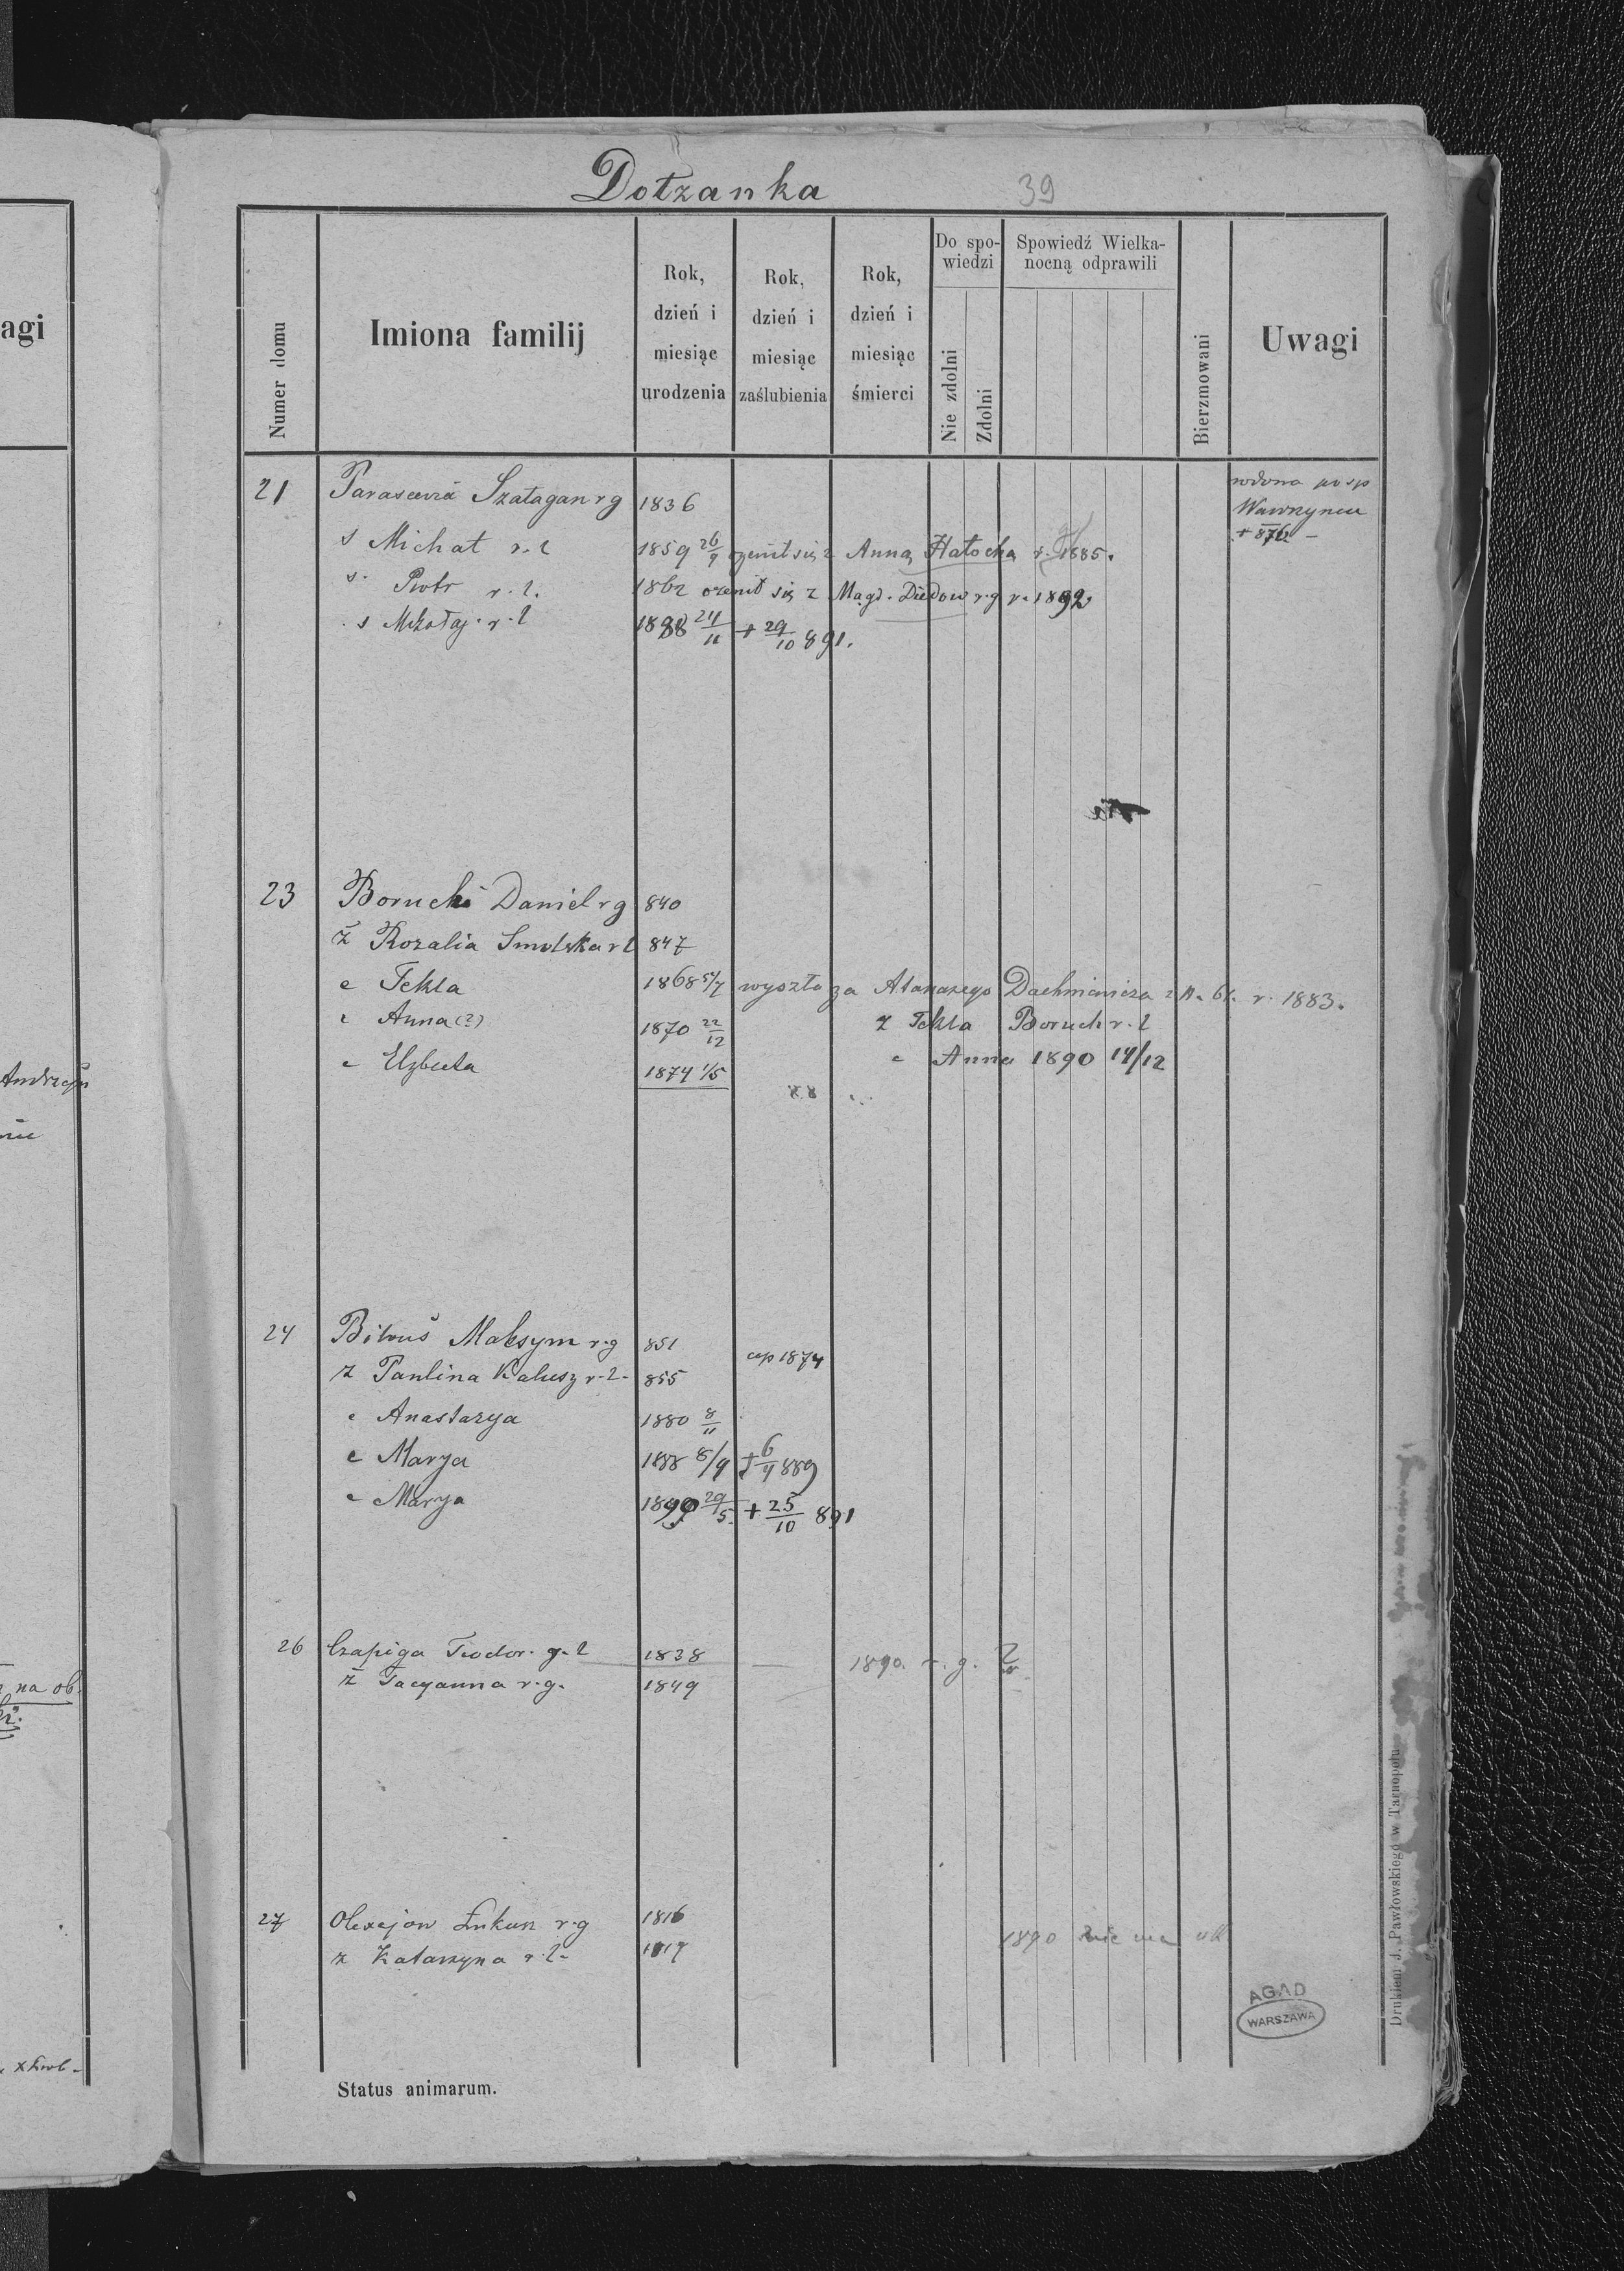 Dołzanka
39
Numer domu
Imiona familij
Rok, dzień i miesiąc urodzenia
Rok, dzień i miesiąc zaślubienia
Rok, dzień i miesiąc śmierci
Do spowiedzi
Nie zdolni
Zdolni
Spowiedź Wielkanocną odprawili
Bierzmowani
Uwagi
agi
21 Parascewia Szałagan r g 1836
wdowa po sp
Wawrzyncu
+ 876 -
s Michał r. l 1859 26/9 ożenił się z Anną Hałocha r. 1885.
s. Piotr r. l. 1862 ożenił się z Magd. Diedow r. g r. 1892
s Mikołaj. r. l 1888 24/11 + 29/10 891.
23 Boruch Daniel r g 840
ż Rozalia Smolska r l 847
c Tekla 1868 5/7 wyszła za Atanazego Dachniewicza z N. 61. r. 1883.
c Anna (?) 1870 22/12 ż Tekla Boruch r. l
c Elżbieta 1874 1/5 c Anna 1890 14/12
24 Bilous Maksym r. g 851
cop 1874
ż Paulina Kalusz r. l - 855
c Anastazya 1880 8/11
c Marya 1888 8/9 + 6/4 889
c Marya 1890 29/5 + 25/10 891
26 Czapiga Teodor. g. l 1838 1890. r. g.
ż Tacyanna r. g. 1849
27 Olexejow Łukasz r. g 1816
ż Katarzyna r. l - 1819
1890 nie ma
Andrzeja
na ob.
AGAD
WARSZAWA
Drukiem J. Pawłowskiego w Tarnopolu.
Status animarum.